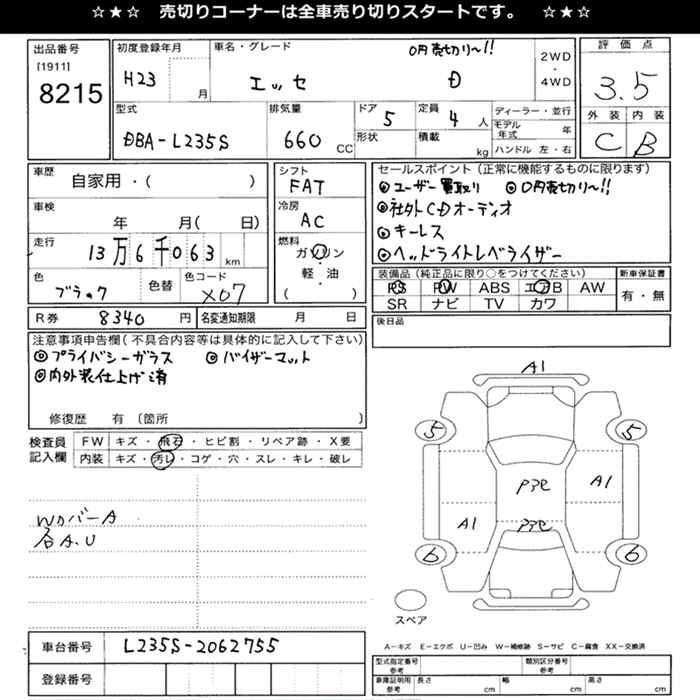 ☆★☆ 売切りコーナーは全車売り切りスタートです。 ☆★☆
出品番号
[1911]
8215
初度登録年月
H23 月
車名・グレード
0円売切り〜!!
エッセ D
2WD
・
4WD
評価点
3.5
外装 内装
C B
型式
DBA-L235S
排気量
660 CC
ドア
5
形状
定員
4 人
積載
kg
ディーラー・並行
モデル年式 年
ハンドル 左・右
車歴
自家用・( )
車検
年 月( 日)
走行
13万6千063 km
色
ブラック
色替
色コード
X07
シフト
FAT
冷房
AC
燃料
ガソリン
・
軽・油
( )
セールスポイント(正常に機能するものに限ります)
◎ユーザー買取り ◎0円売切り〜!!
◎社外CDオーディオ
◎キーレス
◎ヘッドライトレベライザー
装備品(純正品に限り○をつけてください)
PS PW ABS エアB AW
SR ナビ TV カワ
新車保証書
有・無
R券 8340 円
名変通知期限 月 日
後日品
注意事項申告欄(不具合内容等は具体的に記入して下さい)
◎プライバシーガラス ◎バイザーマット
◎内外装仕上げ済
修復歴 有 〔箇所 〕
検査員
記入欄
FW キズ・飛石・ヒビ割・リペア跡・X要
内装 キズ・汚レ・コゲ・穴・スレ・キレ・破レ
WカバーA
各A.U
A1
5
5
A1
A1
6
6
スペア
車台番号
L235S-2062755
登録番号
A−キズ E−エクボ U−凹み W−補修跡 S−サビ C−腐食 XX−交換済
型式指定番号
参考
類別区分番号
参考
車庫証明用
参考
長さ cm
幅 cm
高さ cm